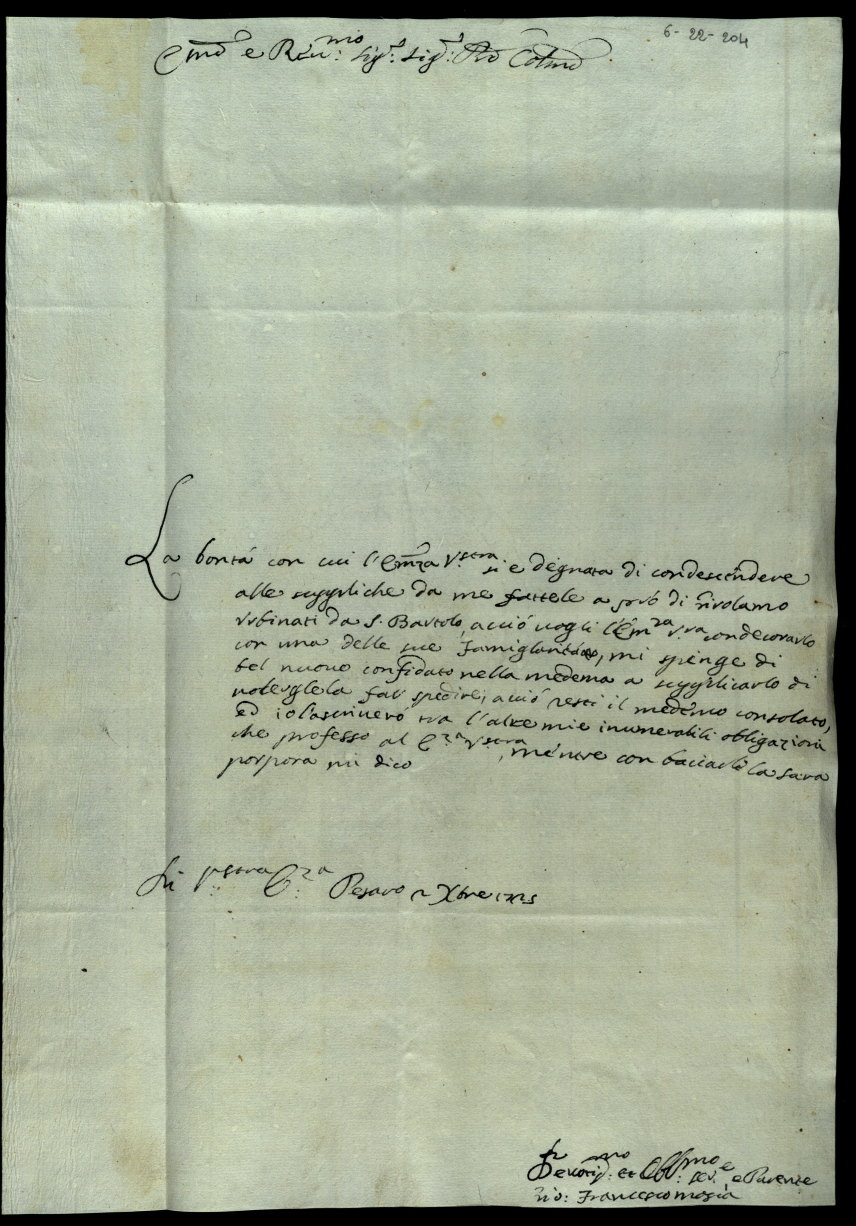 6-22-204
Em̃o e Reu:mo Sig.r Sig.r Pñ Colmo
La bontà con cui l'Em̃za V.stra si e degnata di condescendere
alle suppliche da me fattele a prò di Girolamo
Vrbinati da S. Bartolo, acciò uogli l'Em.za V.ra condecorarlo
con una delle sue, mi spinge di
bel nuouo confidato nella medema a supplicarlo di
uolergliela far spedire, acciò resti il medemo consolato,
ed io l'ascriuerò tra l'altre mie inumerabili obligazioni
che professo al E.za V.stra, mentre con baciarle la sacra
porpora mi dico
Di V.stra E.za Pesaro 2 Xbre 1725
Deuotis.mo et Obl.mo Se.r e Parente
Francesco